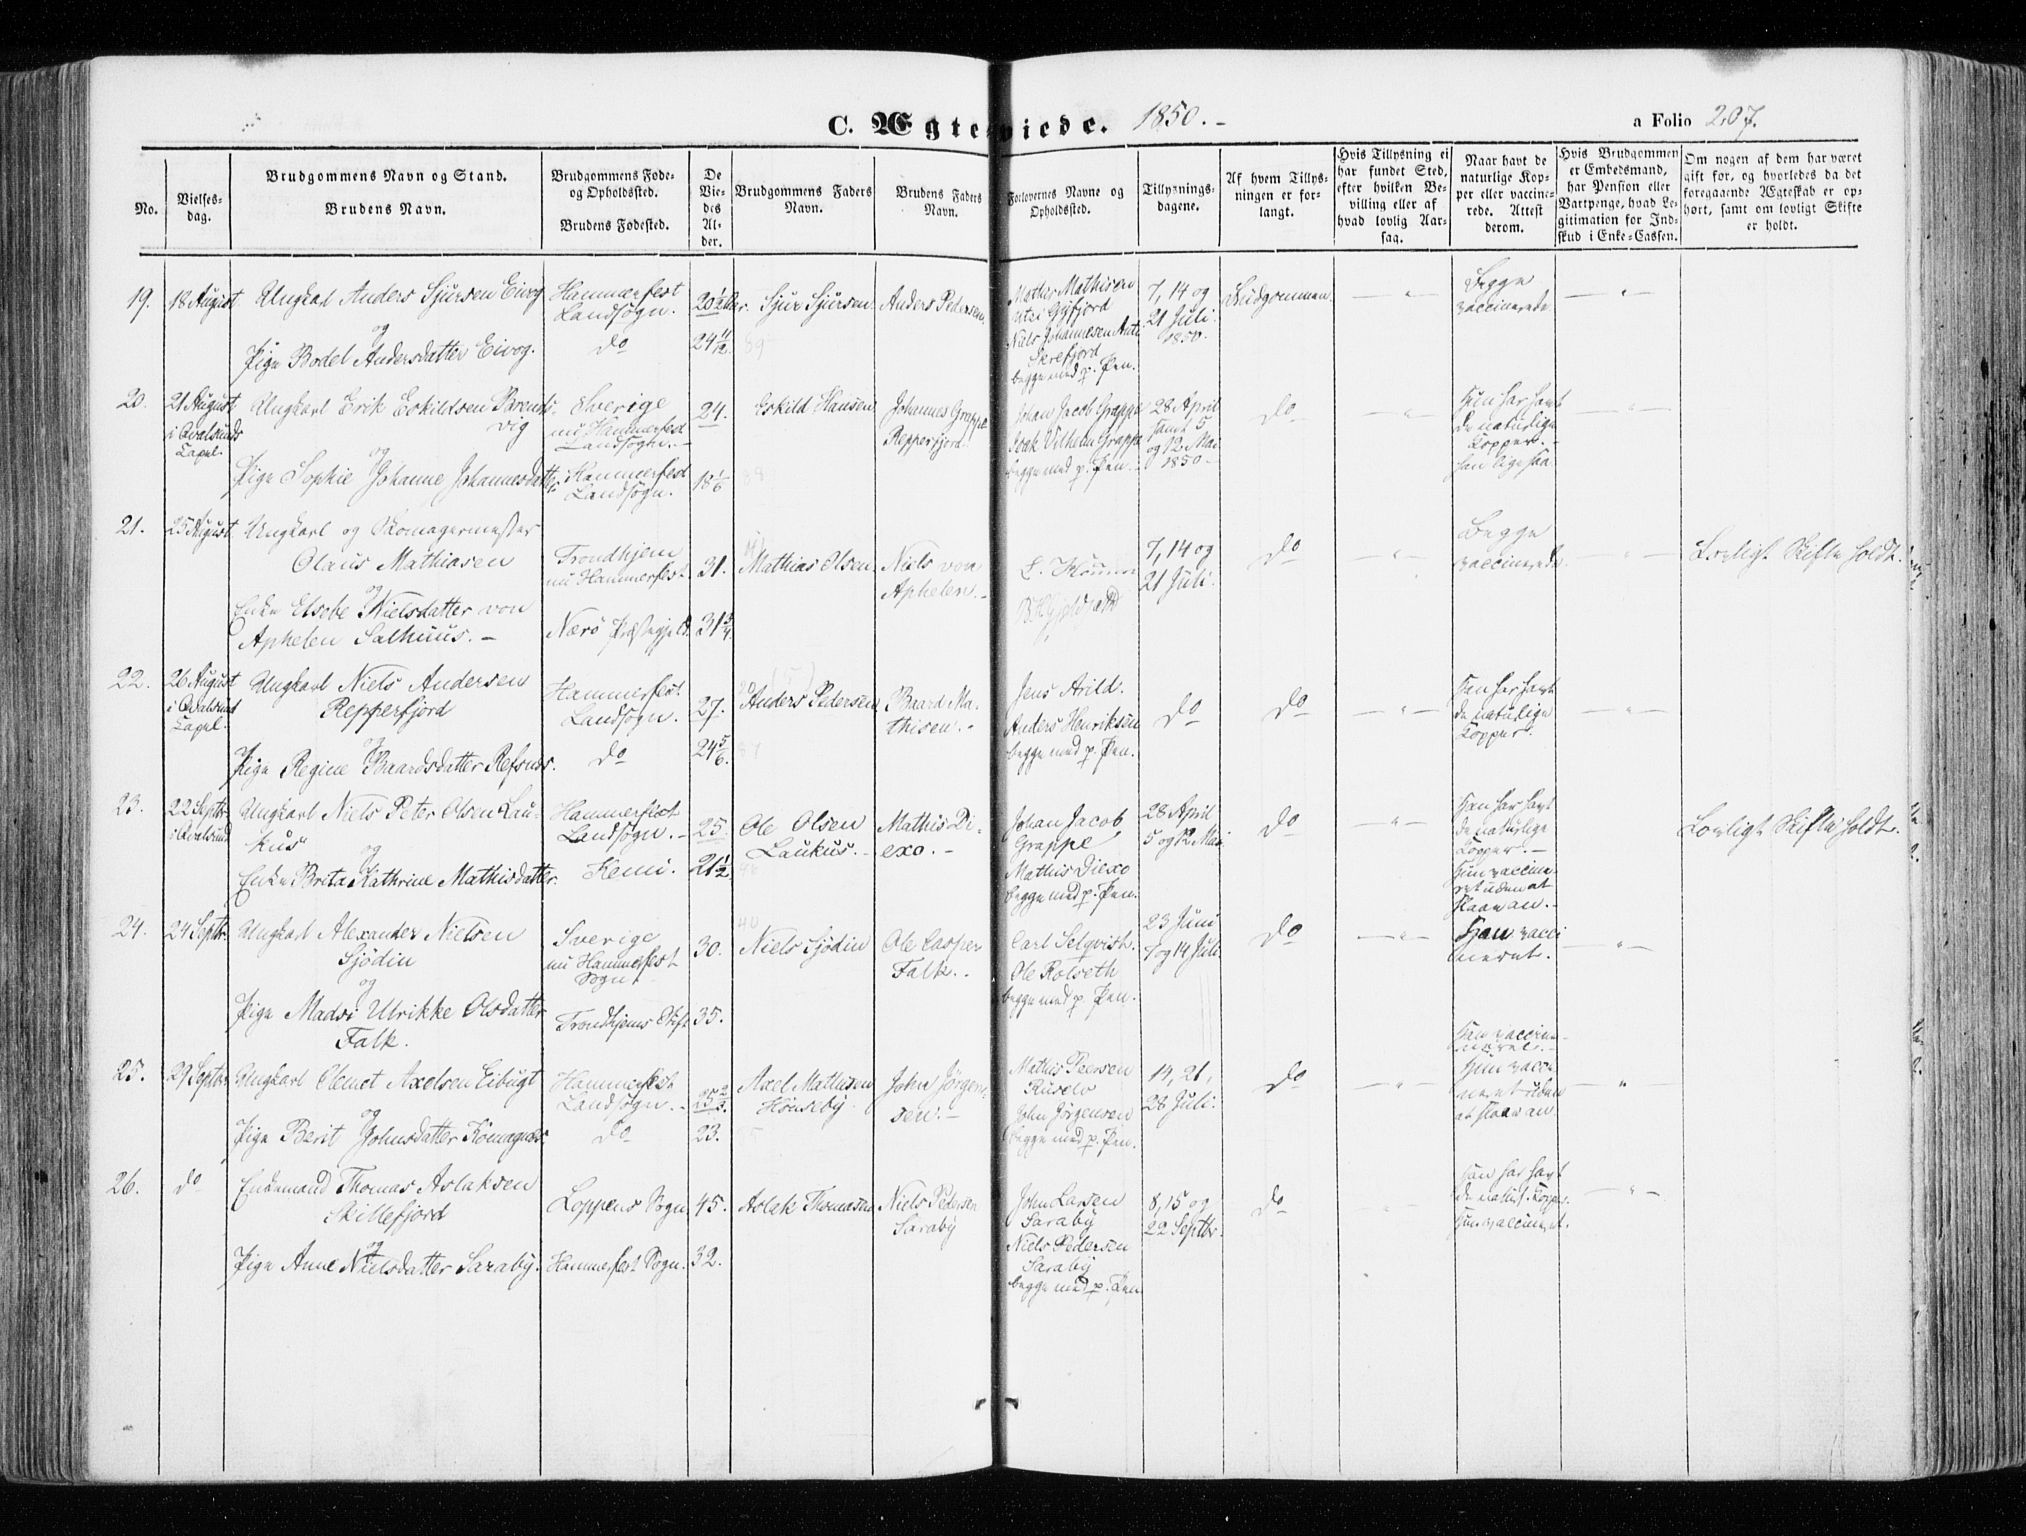 C. Ægteviede. 1850.-
a Folio 207.
No.
Vielses-
dag.
Brudgommens Navn og Stand.
Brudens Navn.
Brudgommens Føde-
og Opholdssted.
Brudens Fødested.
De
Vie-
des
Al-
der.
Brudgommens Faders
Navn.
Brudens Faders
Navn.
Forlovernes Navne og
Opholdssted.
Tillysnings-
dagene.
Af hvem Tillys-
ningen er for-
langt.
Hvis Tillysning ei
har fundet Sted,
efter hvilken Be-
villing eller af
hvad lovlig Aar-
sag.
Naar havt de
naturlige Kop-
per eller vaccine-
rede. Attest
derom.
Hvis Brudgommen
er Embedsmand,
har Pension eller
Vartpenge, hvad Le-
gitimation for Ind-
skud i Enke-Cassen.
Om nogen af dem har været
gift før, og hvorledes da det
foregaaende Ægteskab er op-
hørt, samt om lovligt Skifte
er holdt.
19. 18 August Ungkarl Anders Sjursen Eivog
og
Pige Bodel Andersdatter Eivog.
Hammerfest
Landsogn.
do
20½ Aar.
24 1/12
Sjur Sjursen
Anders Pedersen
Mathis Mathisen
Niels Johannesen
begge med p. Pen.
7, 14 og
21 Juli
1850.
Brudgommen.
Begge
vaccinerede
20. 21 August
i Qvalsunds
Capel.
Ungkarl Erik Eskildsen Porends-
vig
og
Pige Sophie Johanne Johannesdatter
Sverige
nu Hammerfest
Landsogn.-
Hammerfest
Landsogn.
24.
18 1/6
Eskild Hansen
Johannes Grappe
Repperfjord
Johan Jacob Grappe
Isak Vilhelm Grappe
begge med p. Pen.
28 April
samt 5
og 12 Mai
1850-
do
Hun har havt
de naturlige
Kopper.-
han ligesaa
21. 25 August
Ungkarl og Skomagermester
Olaus Mathiasen
og
Enke Elsebe Nielsdatter von
Aphelen Salhuus.-
Trondhjem
nu Hammerfest.
Nærø Præstegjeld.
31.
31¾
Mathias Olsen
Niels von
Aphelen.-
7, 14 og
21 Juli.
do
Begge
vaccinerede
Lovligt Skifte holdt.
22. 26 August
i Qvalsund
Capel.
Ungkarl Niels Andersen
Repperfjord
og
Pige Regine Baardsdatter Refsnes.
Hammerfest
Landsogn.
do
27.
24 5/6.
Anders Pedersen
Baard Ma-
thisen.-
Jens Arild.
Anders Henriksen
begge med p. Pen.
do
do
Han har havt
de naturlige
Kopper.
23. 22 Septbr.
i Qvalsund
Ungkarl Niels Peter Olsen Lau-
kus
og
Enke Brita Kathrine Mathisdatter.
Hammerfest
Landsogn.-
Kemi.
25.
21½
Ole Olsen
Laukus.-
Mathis Di-
exo.-
Johan Jacob
Grappe
Mathis Diexo
begge med p. Pen.
28 April
5 og 12 Mai.
do
Han har havt
de naturlige
Kopper.-
Hun vaccine-
ret uden at
slaae an.-
Lovligt Skifte holdt.
24. 24 Septbr.
Ungkarl Alexander Nielsen
Sjødin
og
Pige Madsi Ulrikke Olsdatter
Falk.
Sverige
nu Hammerfest
Sogn
Trondhjems Stift
30.
35.
Niels Sjødin
Ole Casper
Falk..
Carl Selqvist.
Ole Rolseth
begge med p. Pen.
23 Juni
7 og 14 Juli.
do
Han vacci
neret.
25. 29 Septbr.
Ungkarl Clemet Axelsen Eibugt
og
Pige Berit Johnsdatter Komagnes.
Hammerfest
Landsogn.-
do
25 2/3.
23.
Axel Mathisen
Hønseby
John Jørgen-
sen.-
Mathis Peersen
John Jørgensen
begge med p. Pen.
14, 21,
28 Juli.
do
Han vaccine-
Hun vacci
neret uden
at slaae an.
26. do
Enkemand Thomas Aslaksen
Skillefjord
og
Pige Anne Nielsdatter Saraby.
Loppens Sogn
Hammerfest Sogn.
45.
32.
Aslak Thomasen
Niels Pedersen
Saraby
John Larsen
Saraby
Niels Pedersen
Saraby
begge med p. Pen
8, 15 og
22 Septbr.
do
Han har havt
de naturl. Kopper.
Hun vaccineret.